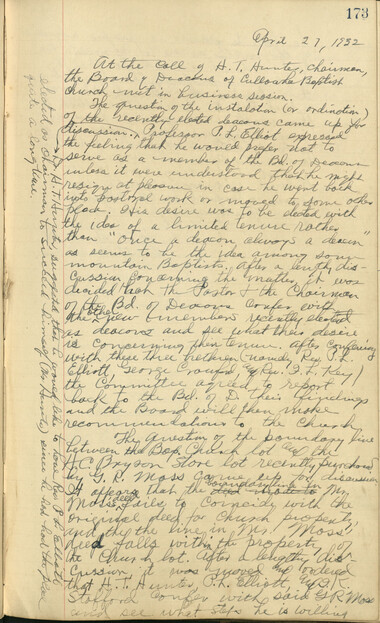 173
April 27, 1932
At the call of H. T. Hunter, Chairman,
the Board of Deacons of Cullowhee Baptist
Church met in business session.
The question of the instalation (or ordination)
of the recently elected deacons came up for
discussion. Professor P. L. Elliott expressed
the feeling that he would prefer not to
serve as a member of the Bd. of Deacons
unless it were understood that he might
resign at pleasure in case he went back
into pastoral work or moved to some other
place. His desire was to be elected with
the idea of a limited tenure rather
than "once a deacon always a deacon"
as seems to be the idea among some
mountain Baptists. After a lengthy dis-
cussion concerning the matter, it was
decided that the Pastor & the Chairman
of the Bd. of Deacons confer with
the other new members recently elected
as deacons and see what their desire
is concerning their tenure. After conferring
with these three brethren (namely, Rev. P. L.
Elliott, George Crawford, & Rev. I. L. Key)
the Committee agreed to report
back to the Bd. of D. their findings
and the Board will then make
recommendations to the Church.
The question of the boundary line
between the Bap. Church lot and the
A. C. Bryson Store lot recently purchased
by G. R. Moss came up for discussion.
It appears that the boundary line in Mr.
Moss' deed fails to coincide with the
original deed for Church property
and that the line in Mr. Moss'
deed falls within the property of
the Church lot. After a lengthy dis-
cussion, it was moved and ordered
that H. T. Hunter, P. L. Elliott, & K.
Stafford confer with said G. R. Moss
and see what steps he is willing
Mr. H. T. Hunter suggested that he would like to have Rev. P. L. Elliott
elected as Chairman to succeed himself (Mr. Hunter) since he has had the place
quite a long time.